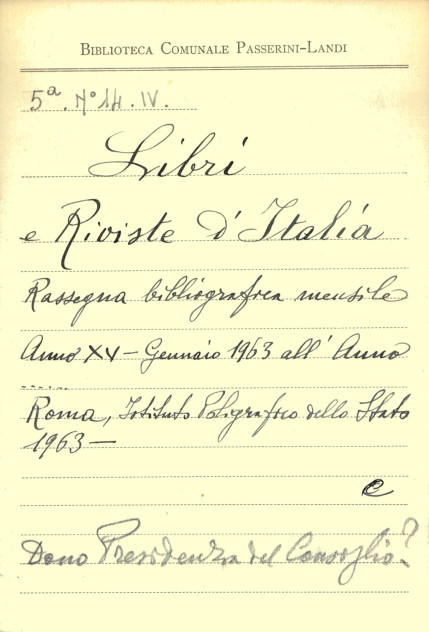 BIBLIOTECA COMUNALE PASSERINI-LANDI
5ª. N° 14. IV.
Libri
e Riviste d'Italia
Rassegna bibliografica mensile
Anno XV - Gennaio 1963 all'Anno
......
Roma, Istituto Poligrafico dello Stato
1963 —
e
Dono Presidenza del Consiglio?